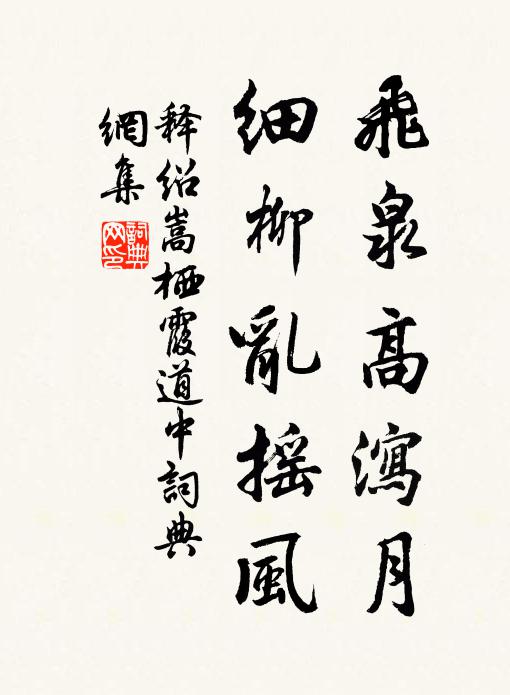 飛泉高瀉月
細柳亂搖風
释绍嵩栖霞道中詞典
網集
詞典网印